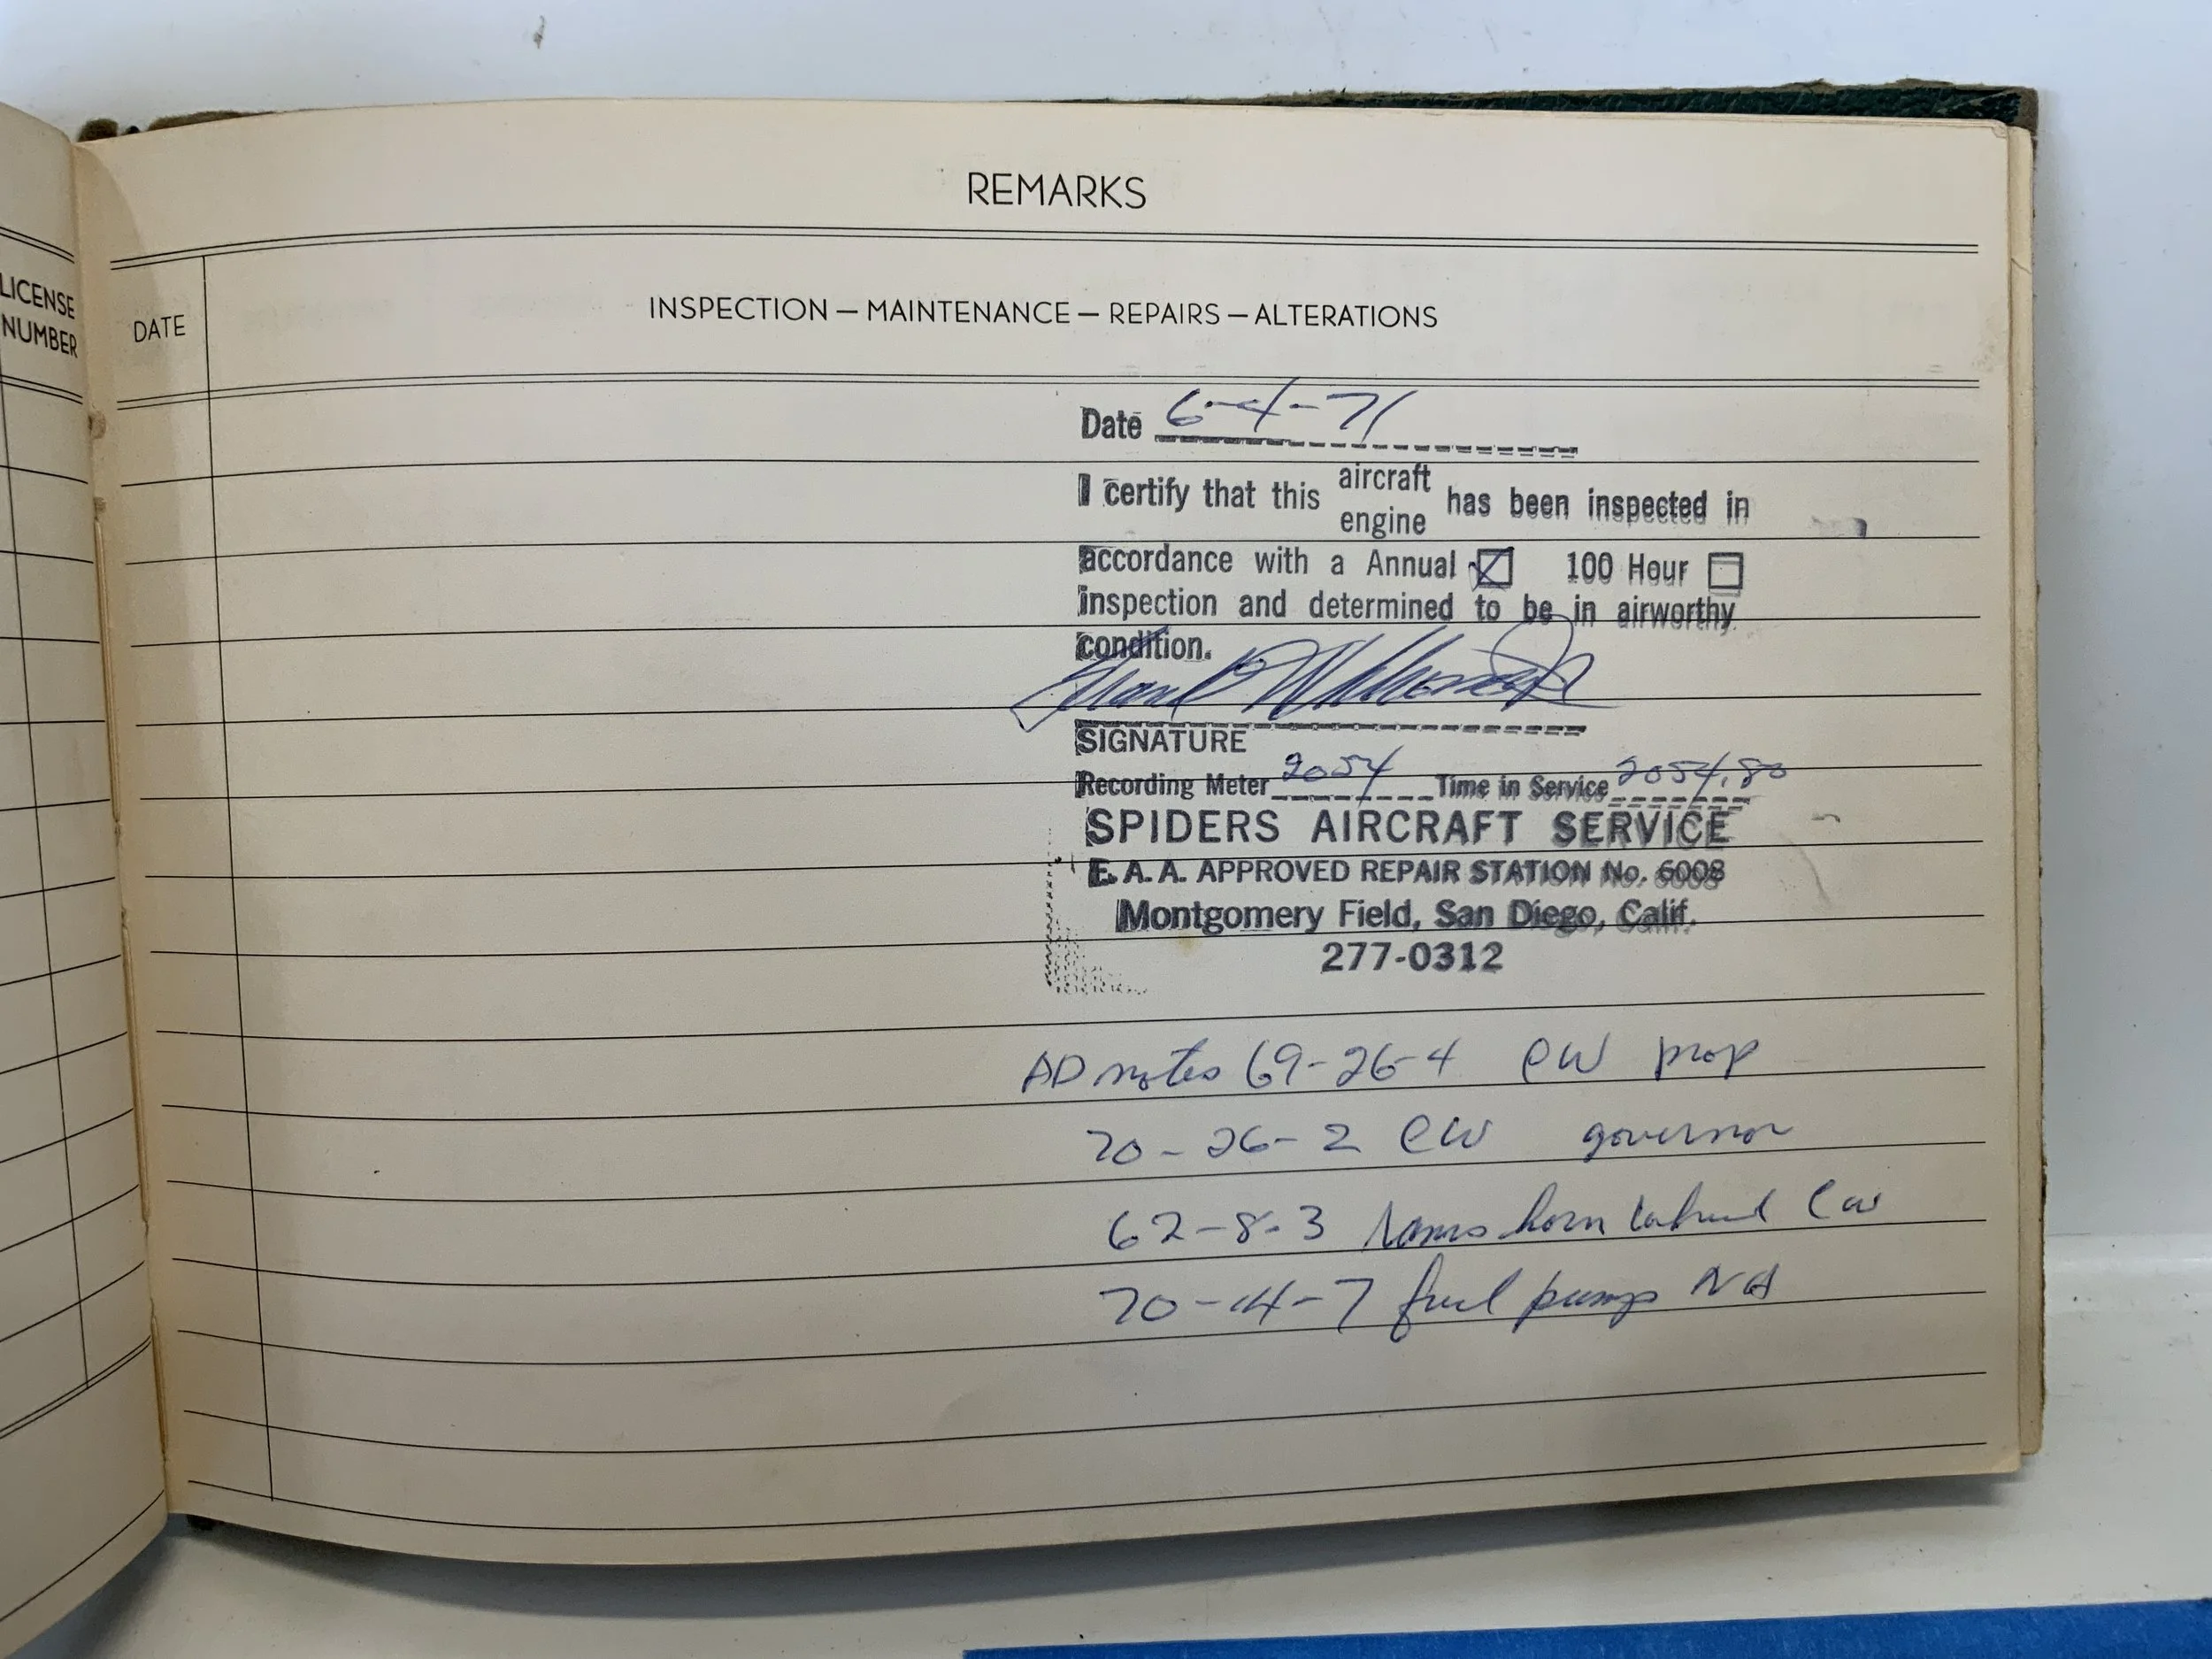 LICENSE
NUMBER
REMARKS
DATE
INSPECTION — MAINTENANCE — REPAIRS — ALTERATIONS
Date 6-4-71
I certify that this aircraft engine has been inspected in
accordance with a Annual ☑ 100 Hour ☐
inspection and determined to be in airworthy
condition.
SIGNATURE
Recording Meter 2054 Time in Service 2054.80
SPIDERS AIRCRAFT SERVICE
F. A. A. APPROVED REPAIR STATION No. 6008
Montgomery Field, San Diego, Calif.
277-0312
AD notes 69-26-4 CW prop
70-26-2 CW governor
62-8-3 horn CW
70-14-7 fuel pump NA